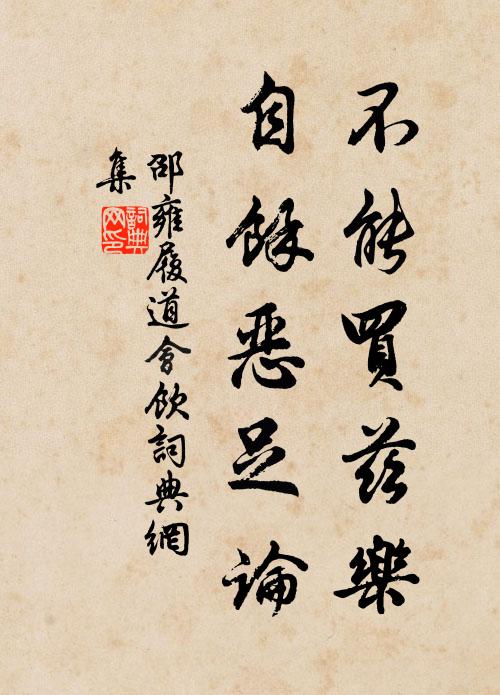 不能買茲樂
自餘惡足論
邵雍履道會飲詞典網
集
詞典
网印